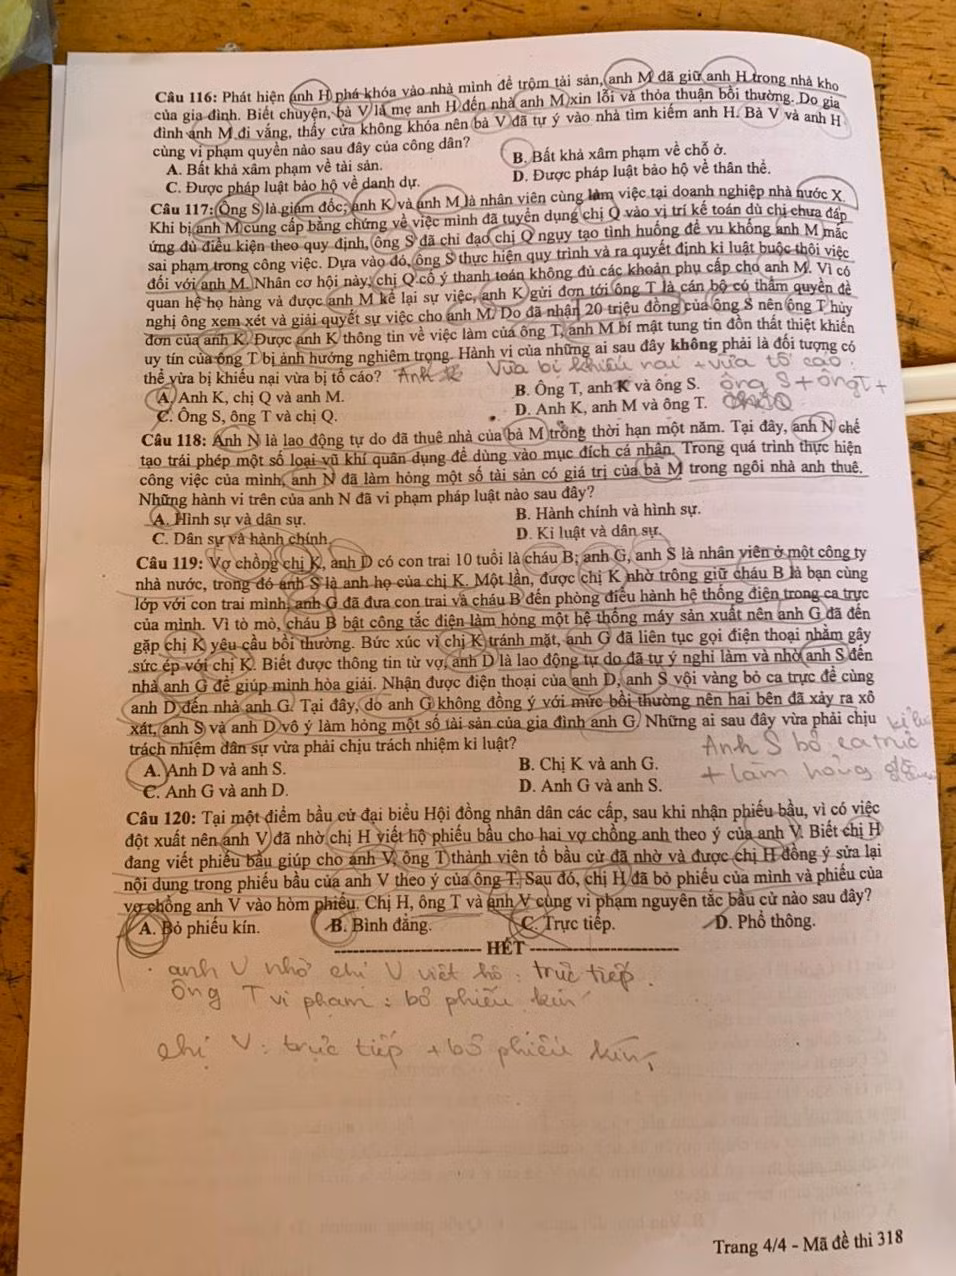 Câu 116: Phát hiện anh H phá khóa vào nhà mình để trộm tài sản, anh M đã giữ anh H trong nhà kho
của gia đình. Biết chuyện, bà V là mẹ anh H đến nhà anh M xin lỗi và thỏa thuận bồi thường. Do gia
đình anh M đi vắng, thấy cửa không khóa nên bà V đã tự ý vào nhà tìm kiếm anh H. Bà V và anh H
cùng vi phạm quyền nào sau đây của công dân?
A. Bất khả xâm phạm về tài sản. B. Bất khả xâm phạm về chỗ ở.
C. Được pháp luật bảo hộ về danh dự. D. Được pháp luật bảo hộ về thân thể.
Câu 117: Ông S là giám đốc; anh K và anh M là nhân viên cùng làm việc tại doanh nghiệp nhà nước X.
Khi bị anh M cung cấp bằng chứng về việc mình đã tuyển dụng chị Q vào vị trí kế toán dù chị chưa đáp
ứng đủ điều kiện theo quy định, ông S đã chỉ đạo chị Q ngụy tạo tình huống để vu khống anh M mắc
sai phạm trong công việc. Dựa vào đó, ông S thực hiện quy trình và ra quyết định kỉ luật buộc thôi việc
đối với anh M. Nhân cơ hội này, chị Q cố ý thanh toán không đủ các khoản phụ cấp cho anh M. Vì có
quan hệ họ hàng và được anh M kể lại sự việc, anh K gửi đơn tới ông T là cán bộ có thẩm quyền đề
nghị ông xem xét và giải quyết sự việc cho anh M. Do đã nhận 20 triệu đồng của ông S nên ông T hủy
đơn của anh K. Được anh K thông tin về việc làm của ông T, anh M bí mật tung tin đồn thất thiệt khiến
uy tín của ông T bị ảnh hưởng nghiêm trọng. Hành vi của những ai sau đây không phải là đối tượng có
thể vừa bị khiếu nại vừa bị tố cáo? Anh K Vừa bị khiếu nại + vừa tố cáo.
A. Anh K, chị Q và anh M. B. Ông T, anh K và ông S. ông S + ông T +
C. Ông S, ông T và chị Q. D. Anh K, anh M và ông T.
Câu 118: Anh N là lao động tự do đã thuê nhà của bà M trong thời hạn một năm. Tại đây, anh N chế
tạo trái phép một số loại vũ khí quân dụng để dùng vào mục đích cá nhân. Trong quá trình thực hiện
công việc của mình, anh N đã làm hỏng một số tài sản có giá trị của bà M trong ngôi nhà anh thuê.
Những hành vi trên của anh N đã vi phạm pháp luật nào sau đây?
A. Hình sự và dân sự. B. Hành chính và hình sự.
C. Dân sự và hành chính. D. Kỉ luật và dân sự.
Câu 119: Vợ chồng chị K, anh D có con trai 10 tuổi là cháu B; anh G, anh S là nhân viên ở một công ty
nhà nước, trong đó anh S là anh họ của chị K. Một lần, được chị K nhờ trông giữ cháu B là bạn cùng
lớp với con trai mình, anh G đã đưa con trai và cháu B đến phòng điều hành hệ thống điện trong ca trực
của mình. Vì tò mò, cháu B bật công tắc điện làm hỏng một hệ thống máy sản xuất nên anh G đã đến
gặp chị K yêu cầu bồi thường. Bức xúc vì chị K tránh mặt, anh G đã liên tục gọi điện thoại nhằm gây
sức ép với chị K. Biết được thông tin từ vợ, anh D là lao động tự do đã tự ý nghỉ làm và nhờ anh S đến
nhà anh G để giúp mình hòa giải. Nhận được điện thoại của anh D, anh S vội vàng bỏ ca trực để cùng
anh D đến nhà anh G. Tại đây, do anh G không đồng ý với mức bồi thường nên hai bên đã xảy ra xô
xát, anh S và anh D vô ý làm hỏng một số tài sản của gia đình anh G. Những ai sau đây vừa phải chịu
trách nhiệm dân sự vừa phải chịu trách nhiệm kỉ luật? Anh S bỏ ca trực
A. Anh D và anh S. B. Chị K và anh G. + làm hỏng
C. Anh G và anh D. D. Anh G và anh S.
Câu 120: Tại một điểm bầu cử đại biểu Hội đồng nhân dân các cấp, sau khi nhận phiếu bầu, vì có việc
đột xuất nên anh V đã nhờ chị H viết hộ phiếu bầu cho hai vợ chồng anh theo ý của anh V. Biết chị H
đang viết phiếu bầu giúp cho anh V, ông T thành viên tổ bầu cử đã nhờ và được chị H đồng ý sửa lại
nội dung trong phiếu bầu của anh V theo ý của ông T. Sau đó, chị H đã bỏ phiếu của mình và phiếu của
vợ chồng anh V vào hòm phiếu. Chị H, ông T và anh V cùng vi phạm nguyên tắc bầu cử nào sau đây?
A. Bỏ phiếu kín. B. Bình đẳng. C. Trực tiếp. D. Phổ thông.
HẾT
anh V nhờ chị V viết hộ: trực tiếp.
ông T vi phạm: bỏ phiếu kín
chị V: trực tiếp + bỏ phiếu kín
Trang 4/4 - Mã đề thi 318